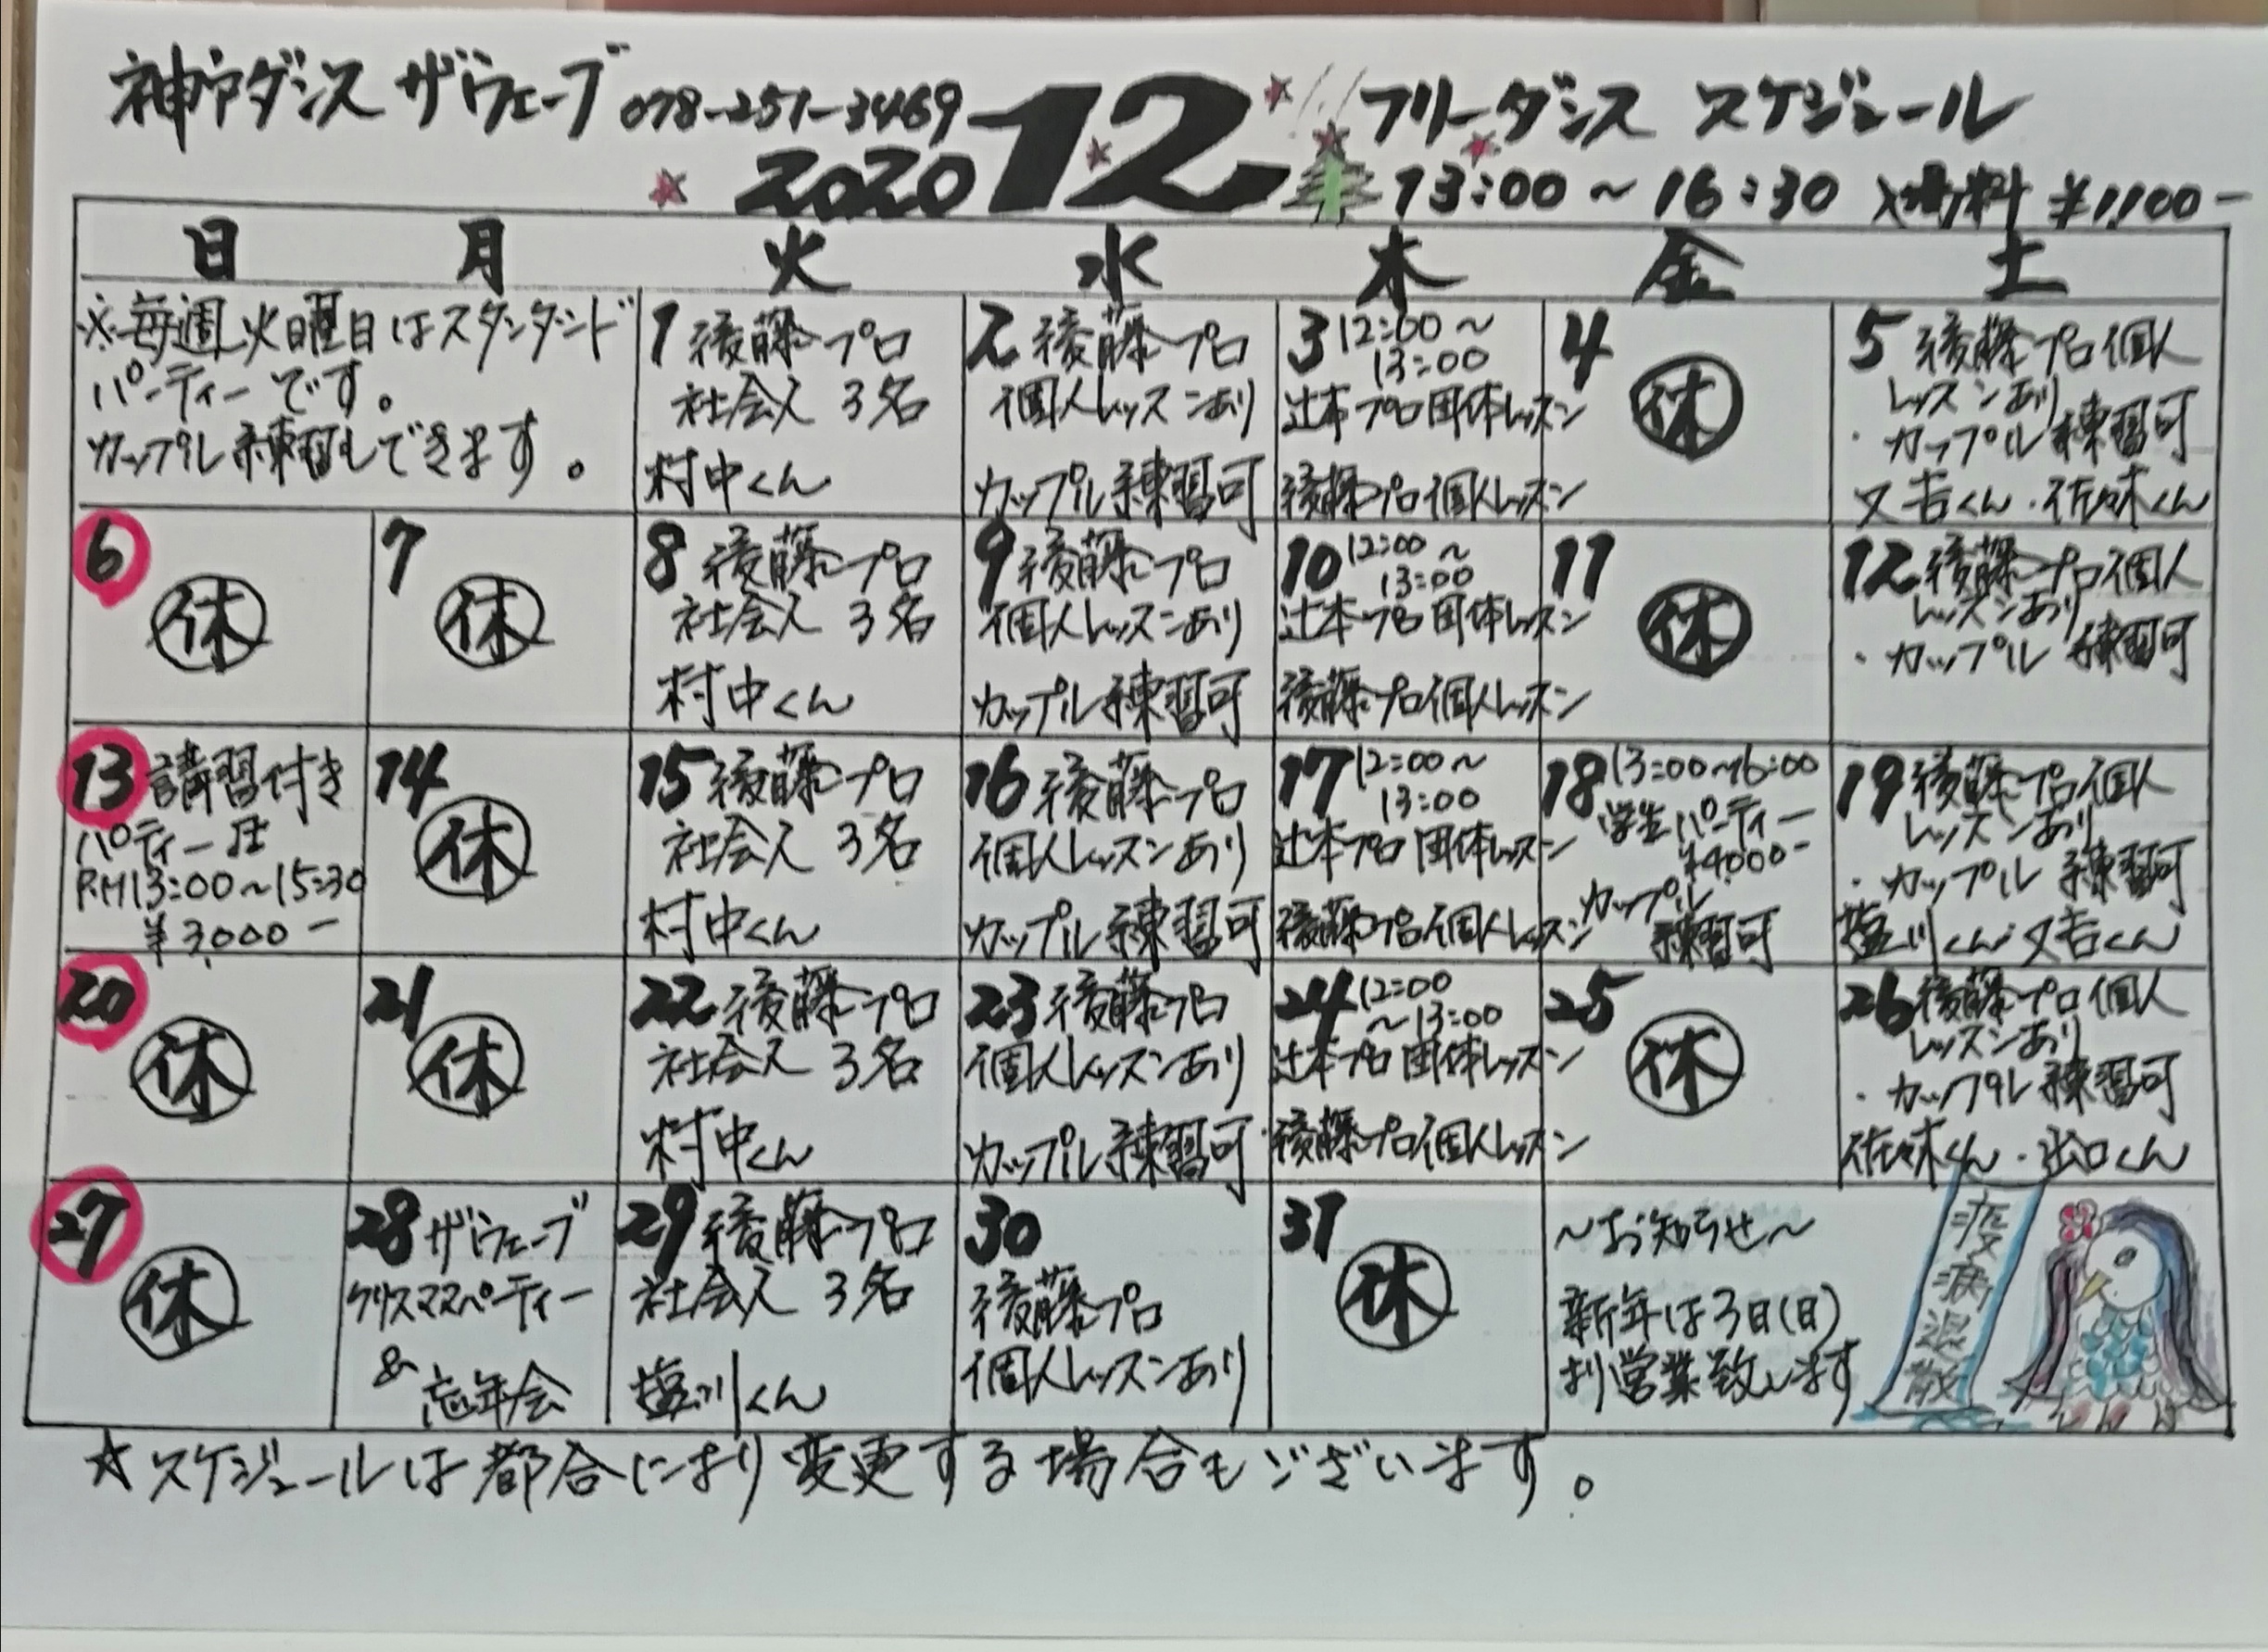 神戸ダンス ザ・ウェーブ 078-251-3469
2020 12
フリーダンス スケジュール
13:00～16:30 入場料 ¥1,100-
日 月 火 水 木 金 土
※毎週火曜日はスタンダード
パーティーです。
カップル練習もできます。
1 後藤プロ
社会人 3名
村中くん
2 後藤プロ
個人レッスンあり
カップル練習可
3 12:00～
13:00
辻本プロ団体レッスン
後藤プロ個人レッスン
4 休
5 後藤プロ個人
レッスンあり
・カップル練習可
又吉くん・佐々木くん
6 休
7 休
8 後藤プロ
社会人 3名
村中くん
9 後藤プロ
個人レッスンあり
カップル練習可
10 12:00～
13:00
辻本プロ団体レッスン
後藤プロ個人レッスン
11 休
12 後藤プロ個人
レッスンあり
・カップル練習可
13 講習付き
パーティー
P.M13:00～15:30
¥3,000-
14 休
15 後藤プロ
社会人 3名
村中くん
16 後藤プロ
個人レッスンあり
カップル練習可
17 12:00～
13:00
辻本プロ団体レッスン
後藤プロ個人レッスン
18 13:00～16:00
学生パーティー
¥4000-
カップル
練習可
19 後藤プロ個人
レッスンあり
・カップル練習可
塩川くん・又吉くん
20 休
21 休
22 後藤プロ
社会人 3名
村中くん
23 後藤プロ
個人レッスンあり
カップル練習可
24 12:00
～13:00
辻本プロ団体レッスン
後藤プロ個人レッスン
25 休
26 後藤プロ個人
レッスンあり
・カップル練習可
佐々木くん・出口くん
27 休
28 ザ・ウェーブ
クリスマスパーティー
&
忘年会
29 後藤プロ
社会人 3名
塩川くん
30
後藤プロ
個人レッスンあり
31 休
～お知らせ～
新年は3日(日)
より営業致します
疫病退散
☆スケジュールは都合により変更する場合もございます。